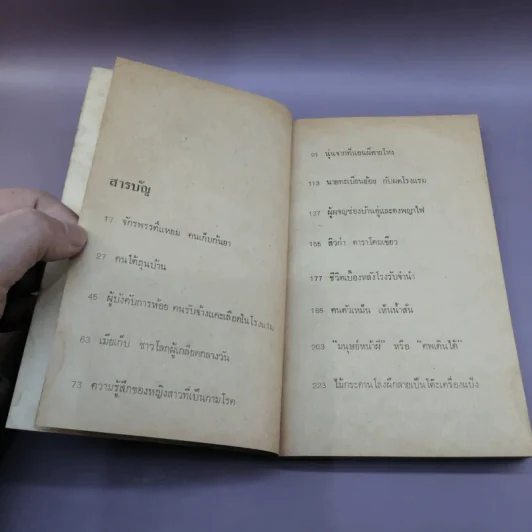 สารบัญ
17 จักรพรรดิ์แหยม คนเก็บยันฮา
27 คนใต้ถุนบ้าน
45 ผู้บังคับการห้อย คนรับจ้างแคะเลือดในโรงแรม
63 เมียเก็บ ชาวโลกผู้เกลียดกลางวัน
73 ความรู้สึกของหญิงสาวที่เป็นกามโรค
91 นุ่นจากที่นอนผีตายโหง
113 นายทะเบียนอ้อย กับมดโรงแรม
137 ผู้ผจญซ่องบ้านคู่และดงพญาไฟ
156 สิวกำ ดาราโคมเขียว
177 ชีวิตเบื้องหลังโรงรับจำนำ
195 คนตัวเหม็น เห็นน้ำสั่น
203 "มนุษย์หน้าผี" หรือ "ศพเดินได้"
223 ไม้กระดานโลงผีกลายเป็นโต๊ะเครื่องแป้ง